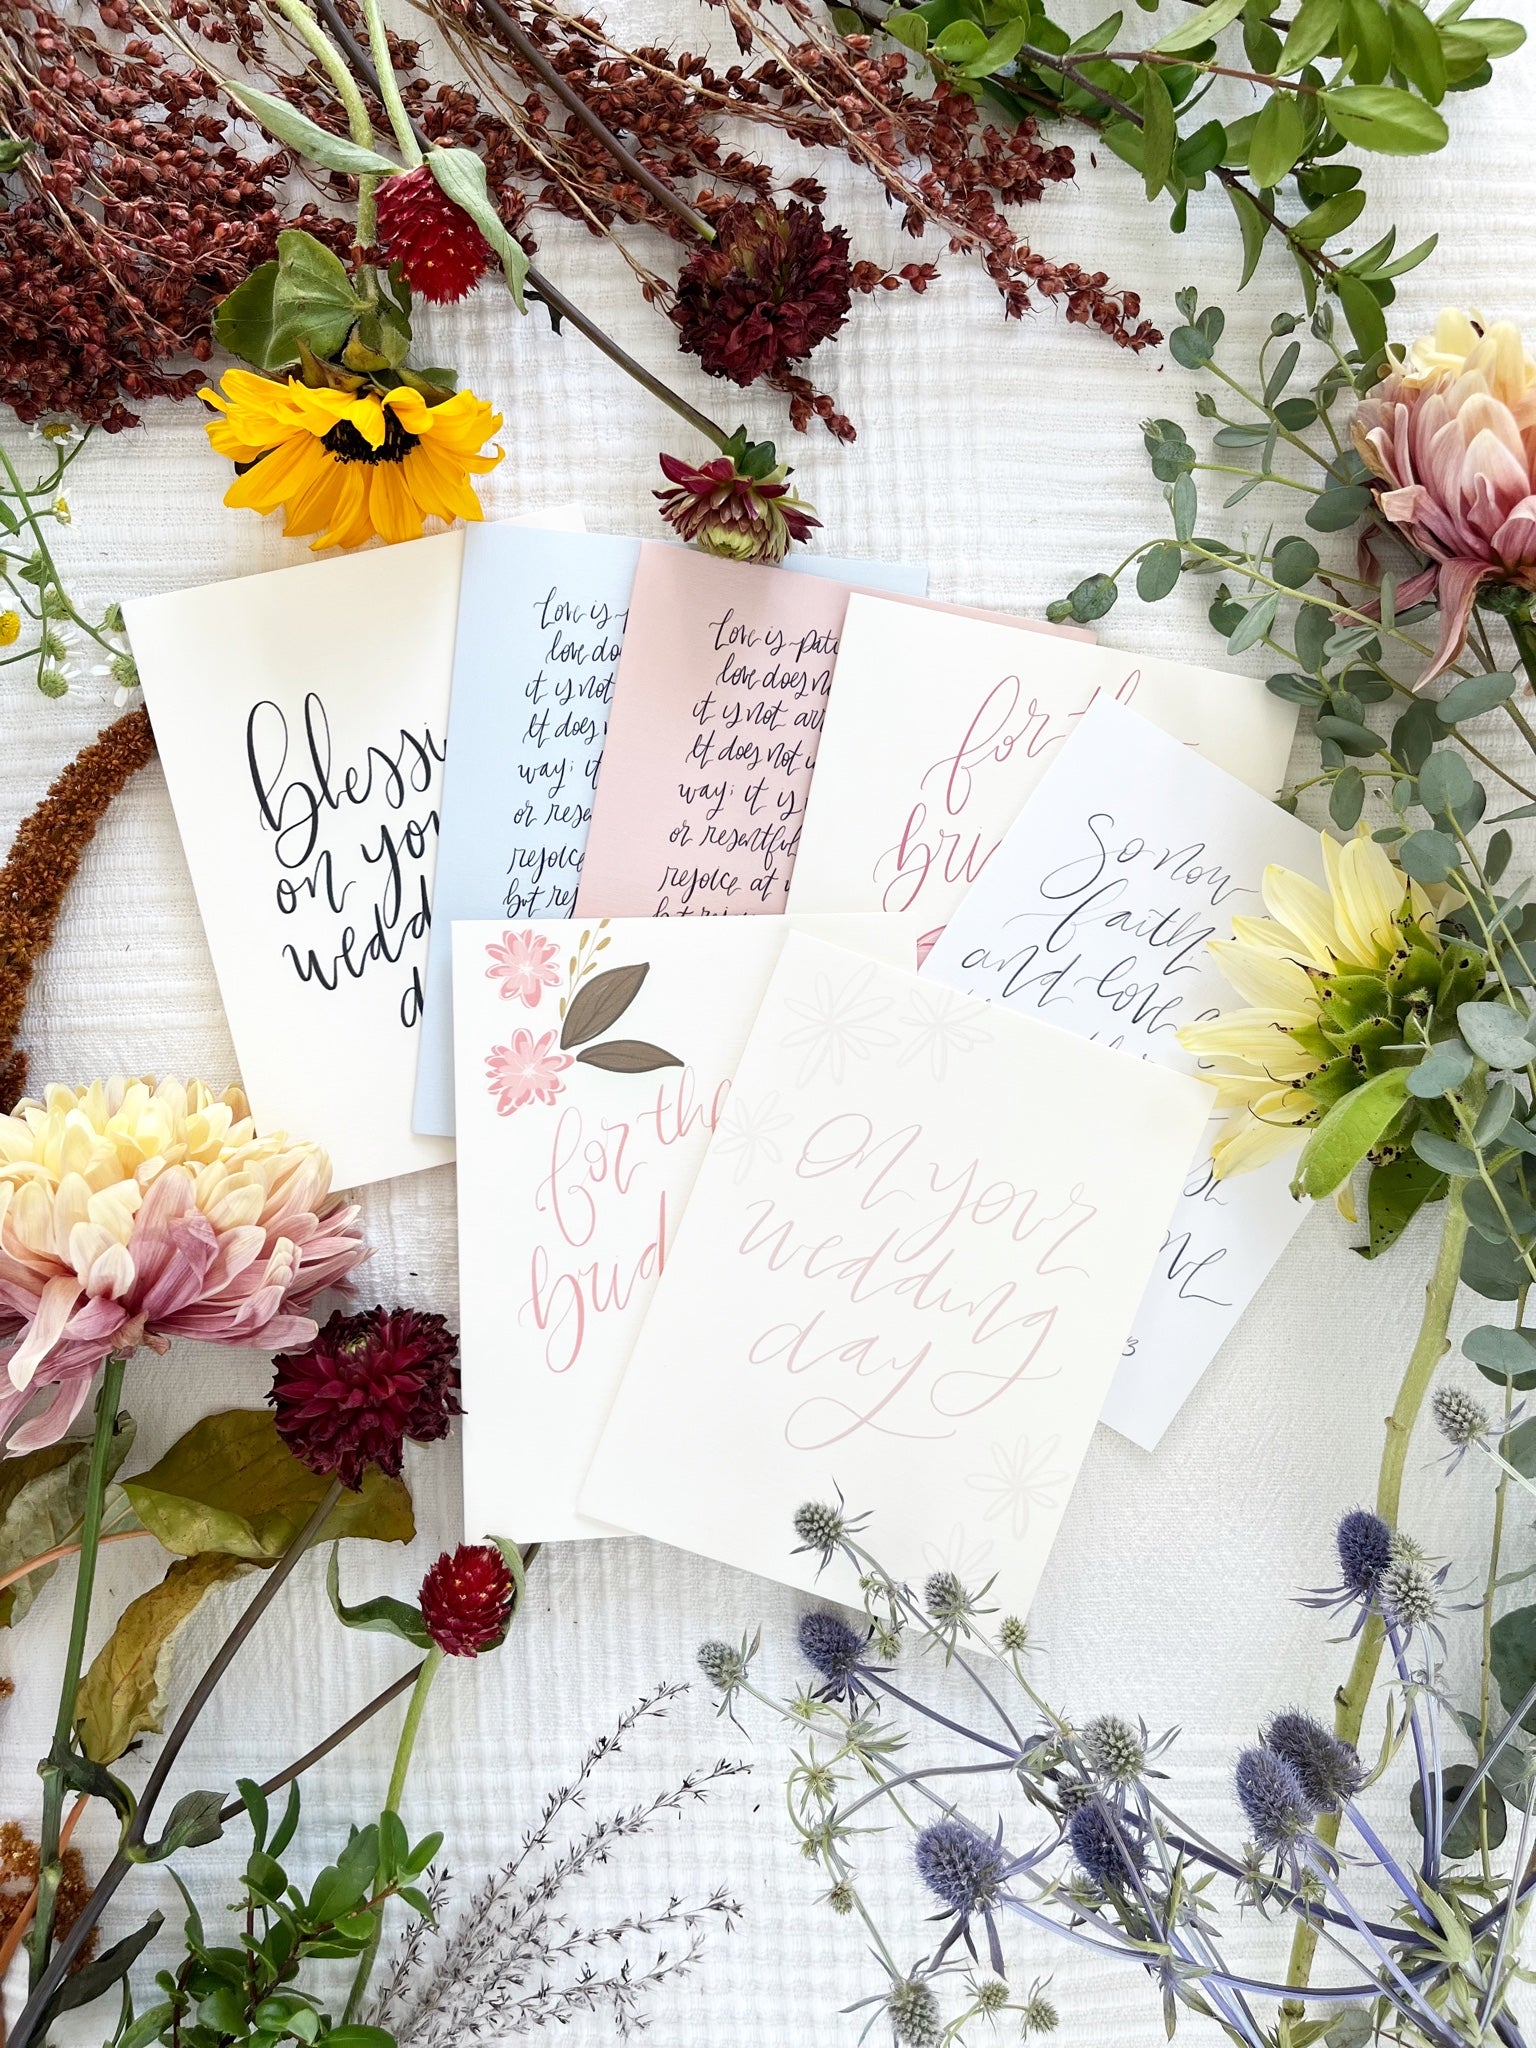 blessi
on you
wedd
d
Love is
love do
it is not
It does
way; it
or rese
rejoice
but rej
Love is pati
love does n
it is not arr
It does not i
way; it is
or resentful
rejoice at
but rejoic
for th
bri
So now
faith,
and love
for the
brid
On your
wedding
day